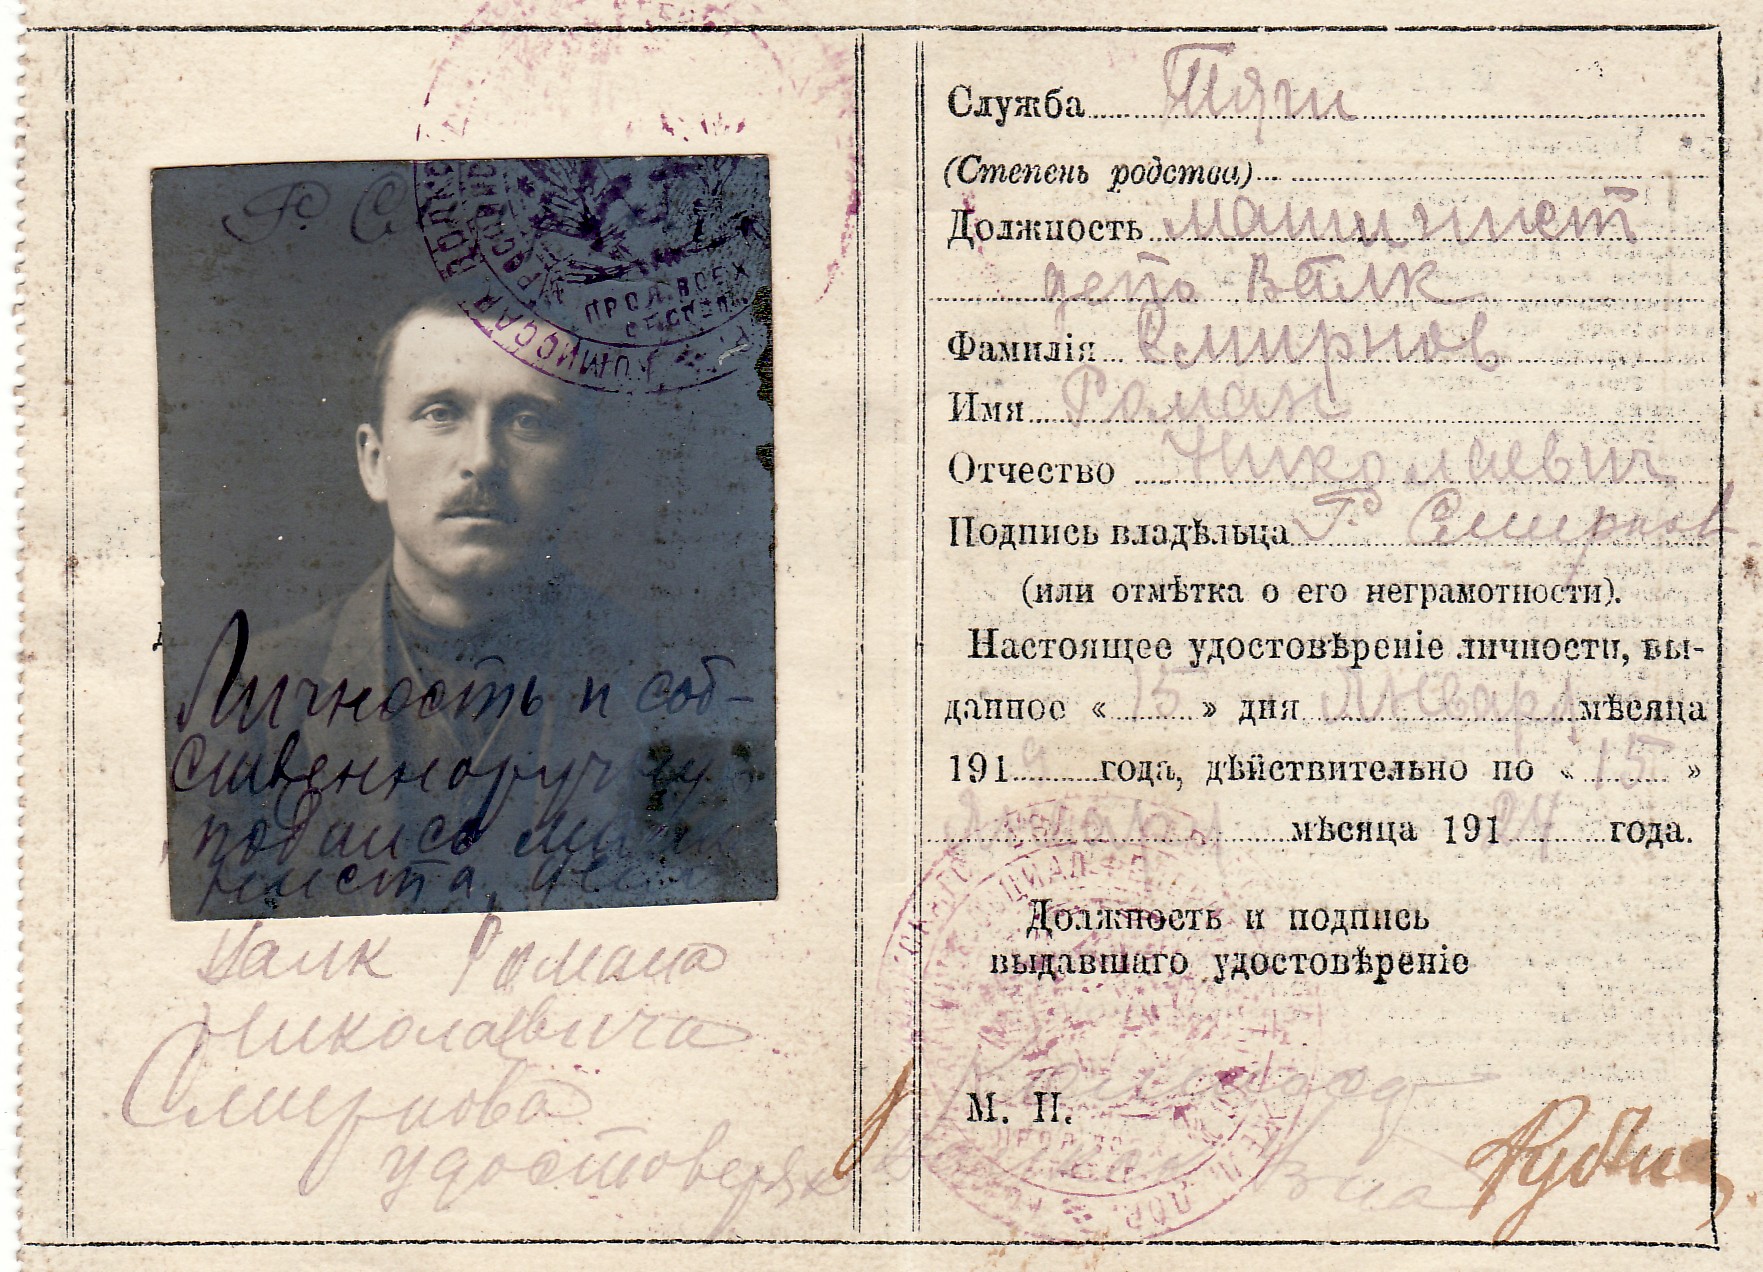 Р. С
Личность и соб-
ственноручную
подпись маши
ниста депо
Валк Романа
Николаевича
Смирнова
удостоверяю
КОМИССАР
ПРОЛ. ВСЕХ
СТР. СОЕД.
Служба Тяги
(Степень родства)
Должность машинист
депо Валк
Фамилія Смирнов
Имя Роман
Отчество Николаевич
Подпись владѣльца Р. Смирнов
(или отмѣтка о его неграмотности).
Настоящее удостовѣреніе личности, вы-
данное « 15 » дня Января мѣсяца
1919 года, дѣйствительно по « 15 »
Января мѣсяца 191 года.
Должность и подпись
выдавшаго удостовѣреніе
М. П.